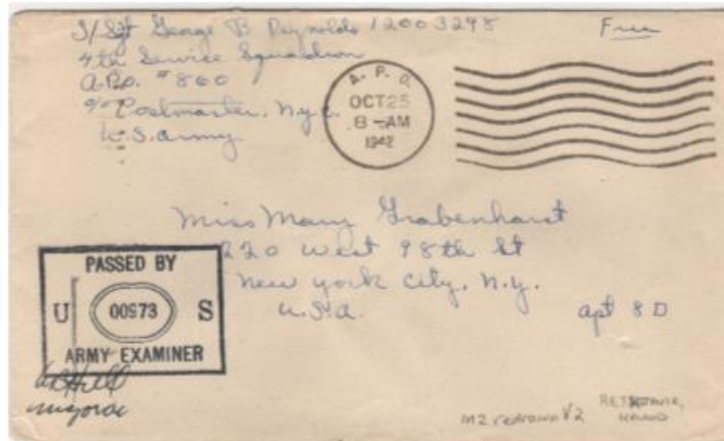 S/Sgt George B Reynolds 12003298
4th Service Squadron
A.P.O. #860
c/o Postmaster, N.Y.C.
U.S. Army
Free
A. P. O.
OCT 25
8 - AM
1942
Miss Mary Grabenhorst
220 West 98th St
New York City, N.Y.
U.S.A.
apt 8D
PASSED BY
U 00973 S
ARMY EXAMINER
Hill
m2 redrawn V2